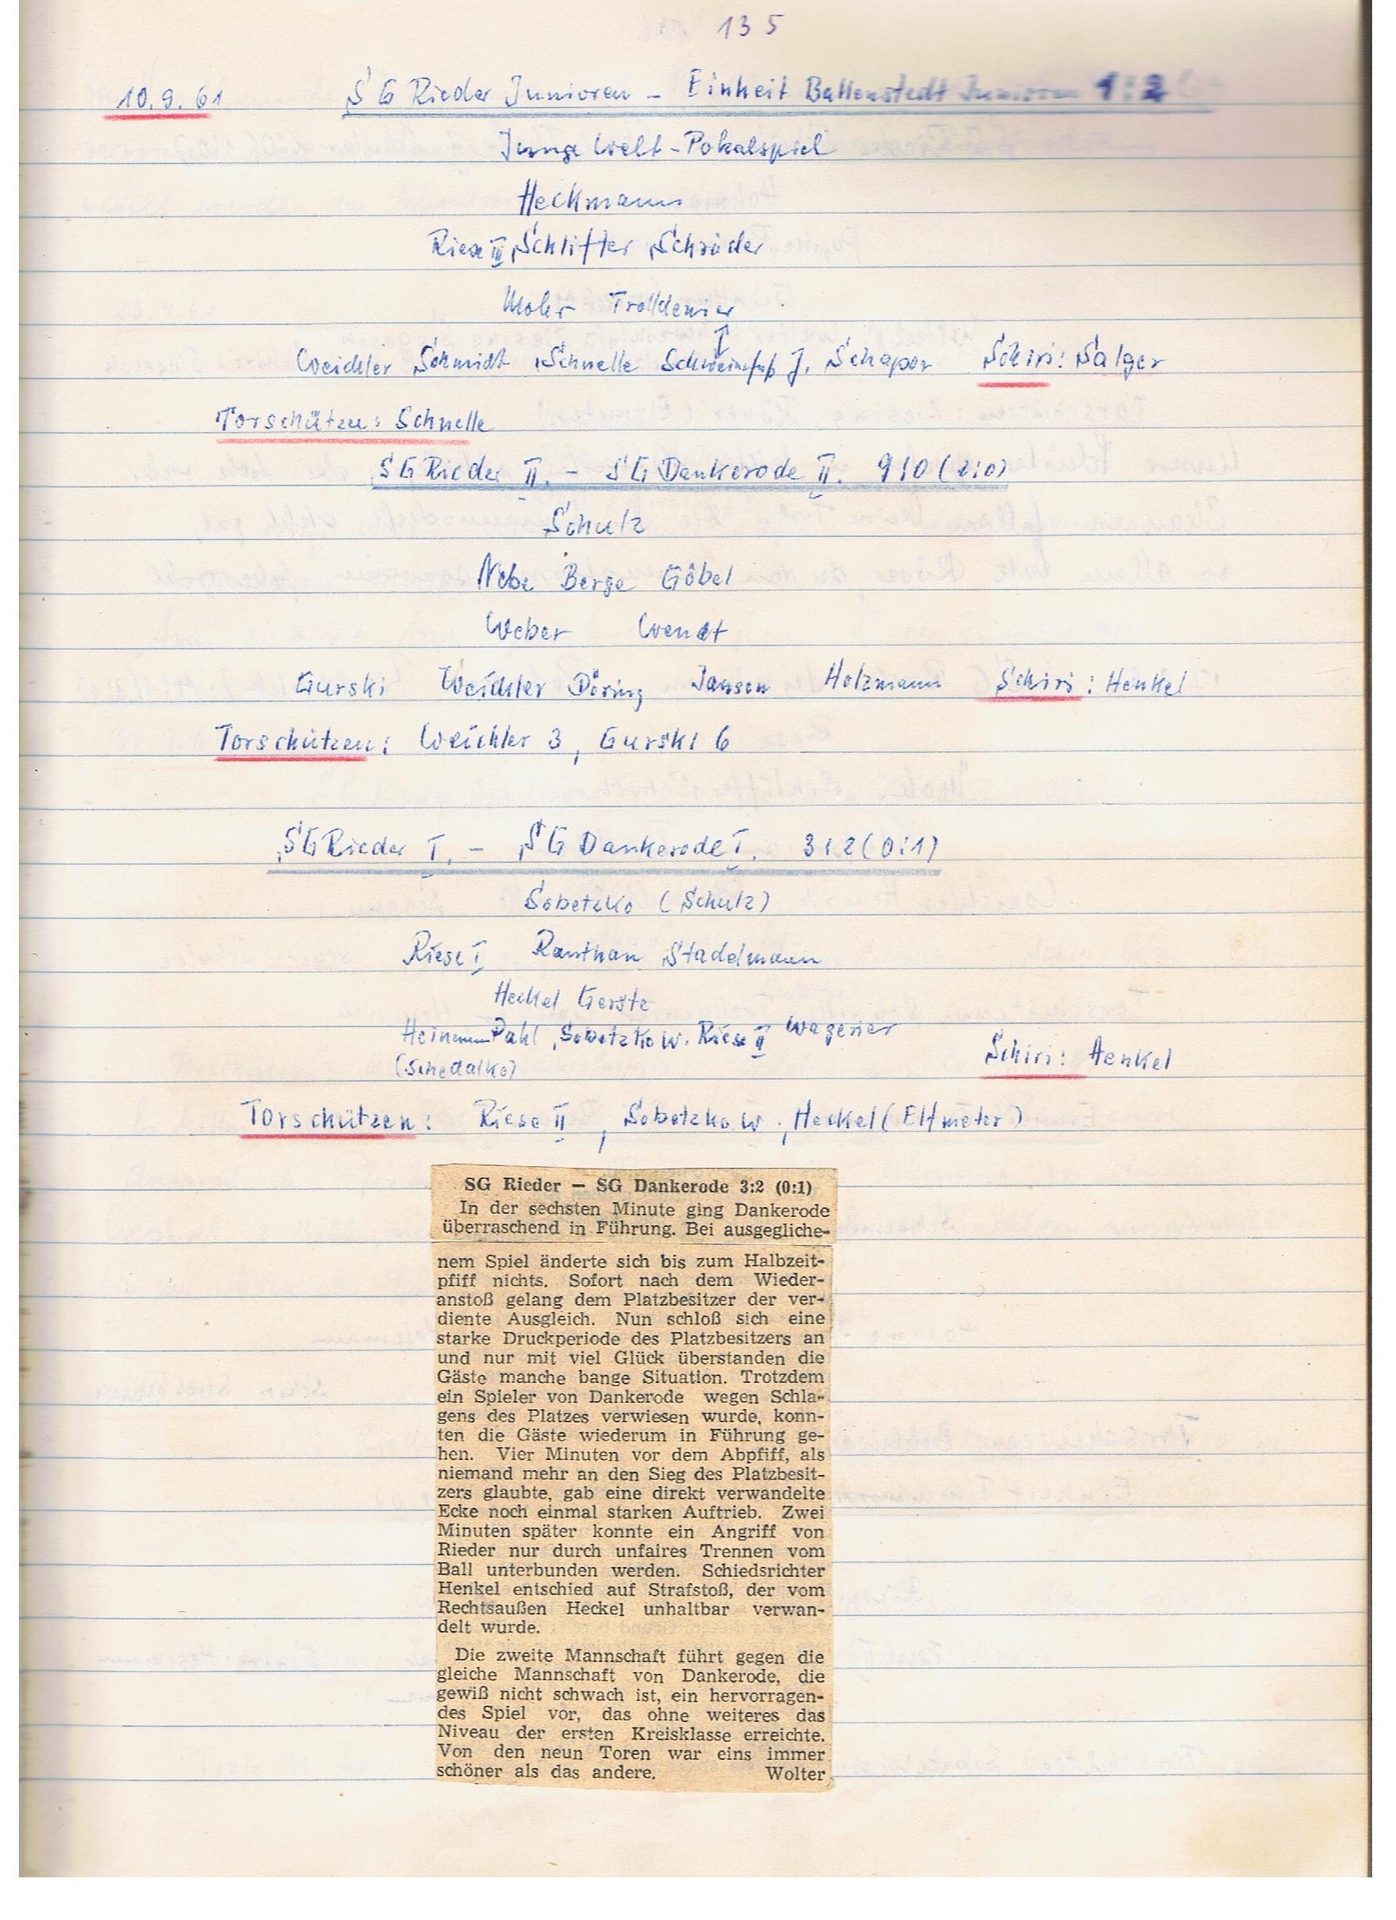 135
10.9.61 SG Rieder Junioren - Einheit Ballenstedt Junioren 1:2
Junge Welt-Pokalspiel
Heckmann
Riese III Schlifter Schröder
Mohr Trolldenier
Weichler Schmidt Schnelle Schweinefuß J. Schaper Schiri: Salger
Torschützen: Schnelle
SG Rieder II. - SG Dankerode II. 9:0 (2:0)
Schulz
Nebe Berge Göbel
Weber Wendt
Gurski Weichler Döring Jansen Holzmann Schiri: Henkel
Torschützen: Weichler 3, Gurski 6
SG Rieder I. - SG Dankerode I. 3:2 (0:1)
Sobetzko (Schulz)
Riese I Ranthan Stadelmann
Heckel Gerste
Heinemann Pahl Sobetzko W. Riese II Wagener
(Schedalke) Schiri: Henkel
Torschützen: Riese II, Sobetzko W., Heckel (Elfmeter)
SG Rieder — SG Dankerode 3:2 (0:1)
In der sechsten Minute ging Dankerode
überraschend in Führung. Bei ausgegliche-
nem Spiel änderte sich bis zum Halbzeit-
pfiff nichts. Sofort nach dem Wieder-
anstoß gelang dem Platzbesitzer der ver-
diente Ausgleich. Nun schloß sich eine
starke Druckperiode des Platzbesitzers an
und nur mit viel Glück überstanden die
Gäste manche bange Situation. Trotzdem
ein Spieler von Dankerode wegen Schla-
gens des Platzes verwiesen wurde, konn-
ten die Gäste wiederum in Führung ge-
hen. Vier Minuten vor dem Abpfiff, als
niemand mehr an den Sieg des Platzbesit-
zers glaubte, gab eine direkt verwandelte
Ecke noch einmal starken Auftrieb. Zwei
Minuten später konnte ein Angriff von
Rieder nur durch unfaires Trennen vom
Ball unterbunden werden. Schiedsrichter
Henkel entschied auf Strafstoß, der vom
Rechtsaußen Heckel unhaltbar verwan-
delt wurde.
Die zweite Mannschaft führt gegen die
gleiche Mannschaft von Dankerode, die
gewiß nicht schwach ist, ein hervorragen-
des Spiel vor, das ohne weiteres das
Niveau der ersten Kreisklasse erreichte.
Von den neun Toren war eins immer
schöner als das andere. Wolter